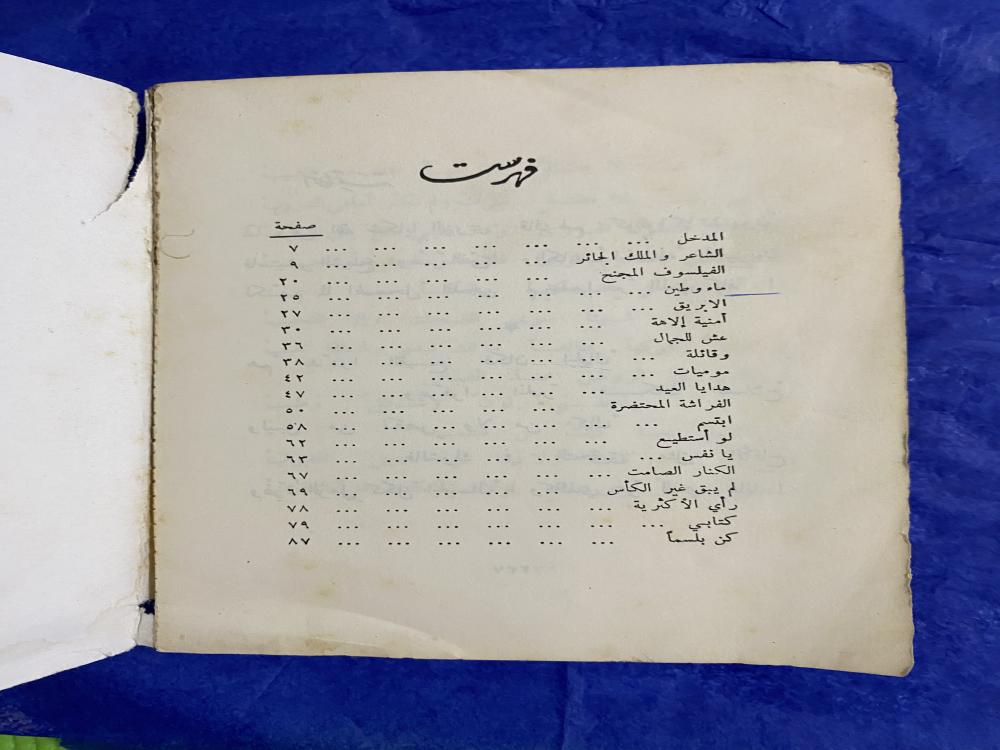 فهرست
صفحة
المدخل ... ... ... ... ... ... ... ٧
الشاعر والملك الجائر ... ... ... ... ... ٩
الفيلسوف المجنح ... ... ... ... ... ٢٠
ماء وطين ... ... ... ... ... ... ... ٢٥
الابريق ... ... ... ... ... ... ... ٢٧
أمنية إلاهة ... ... ... ... ... ... ٣٠
عش للجمال ... ... ... ... ... ... ٣٦
وقائلة ... ... ... ... ... ... ... ٣٨
موميات ... ... ... ... ... ... ... ٤٢
هدايا العيد ... ... ... ... ... ... ٤٧
الفراشة المحتضرة ... ... ... ... ... ٥٠
ابتسم ... ... ... ... ... ... ... ٥٨
لو أستطيع ... ... ... ... ... ... ٦٢
يا نفس ... ... ... ... ... ... ... ٦٣
الكنار الصامت ... ... ... ... ... ... ٦٧
لم يبق غير الكأس ... ... ... ... ... ٦٩
رأي الأكثرية ... ... ... ... ... ... ٧٨
كتابي ... ... ... ... ... ... ... ٧٩
كن بلسماً ... ... ... ... ... ... ٨٧